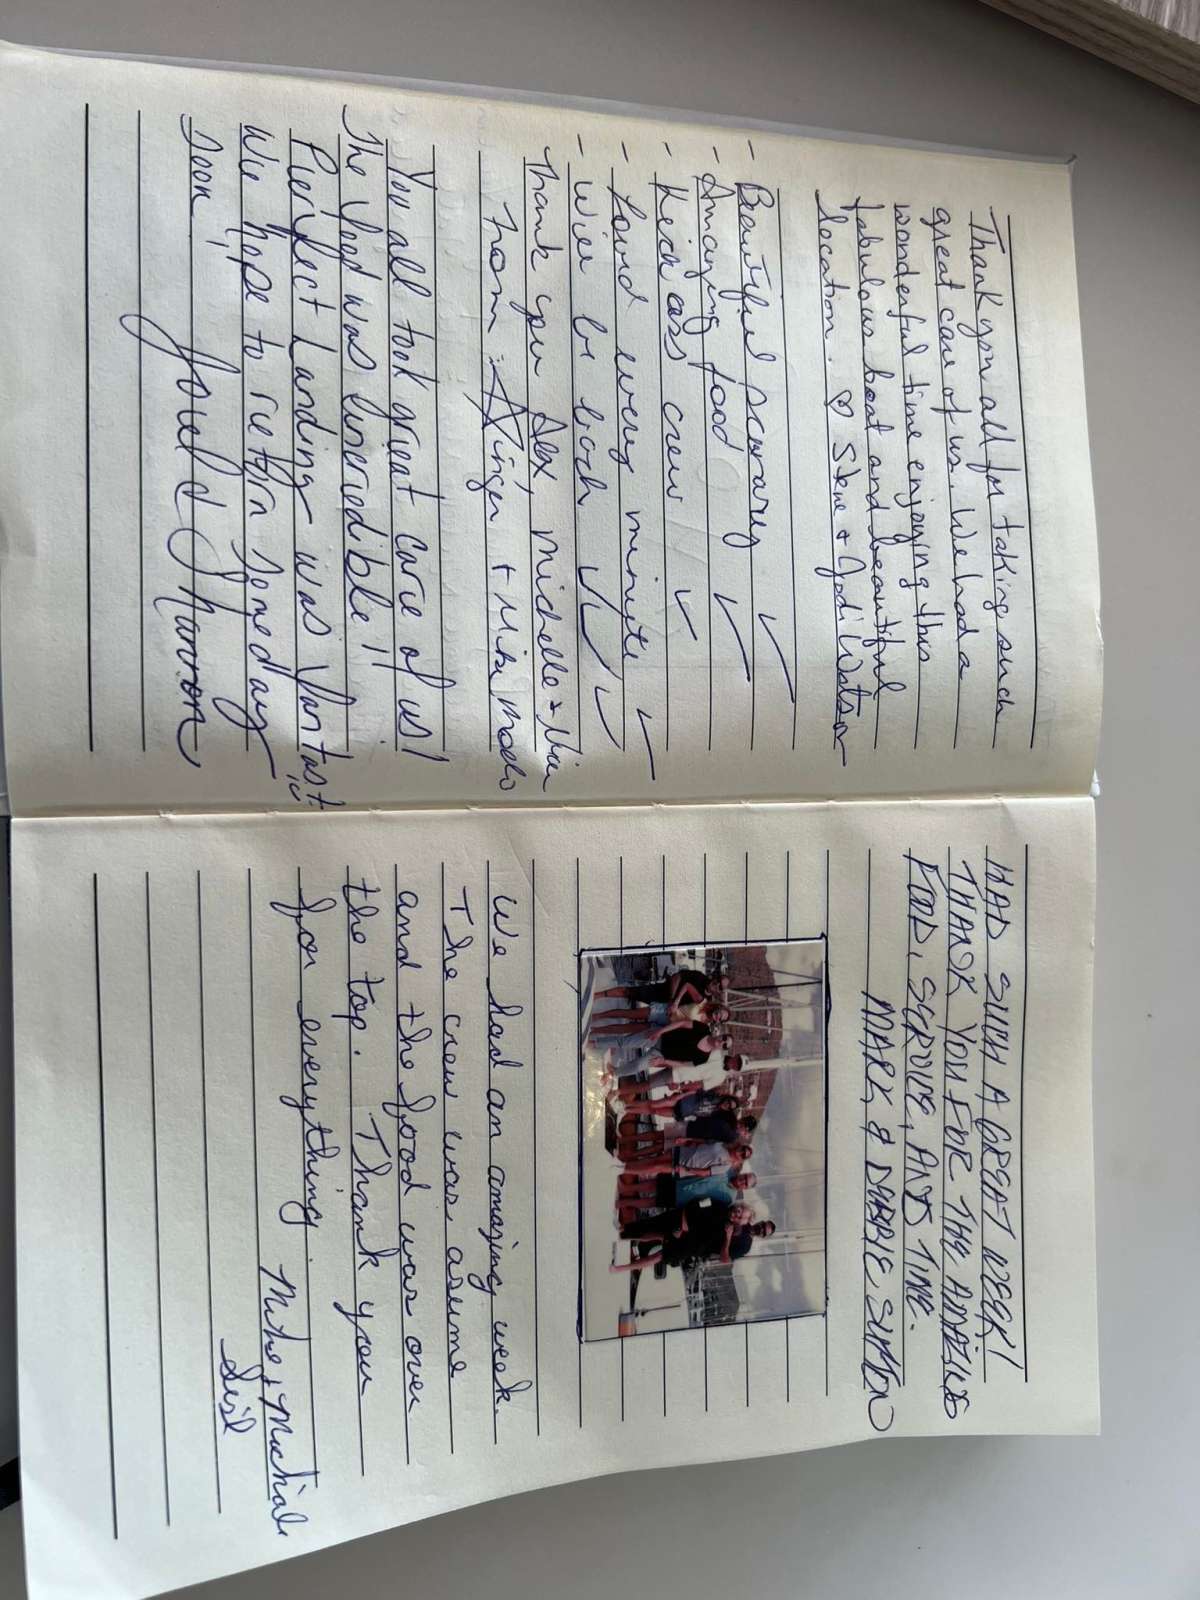 Thank you all for taking such
great care of us. We had a
wonderful time enjoying this
fabulous boat and beautiful
location. ♡ Steve + Jodi Watson
- Beautiful scenery ✓
- Amazing food ✓
- Kick ass crew ✓
- Loved every minute ✓
- Will be back ✓✓✓
Thank you Alex, Michelle +
from Ginger + Mike
You all took great care of us!
The food was incredible!!
Perfect Landing was fantast.
We hope to return someday
soon! Joel & Shannon
HAD SUCH A GREAT WEEK!
THANK YOU FOR THE AMAZING
FOOD, SERVICE, AND TIME.
MARK & DEBBIE SUTTON
We had an amazing week.
The crew was assume
and the food was over
the top. Thank you
for everything.
Mike +